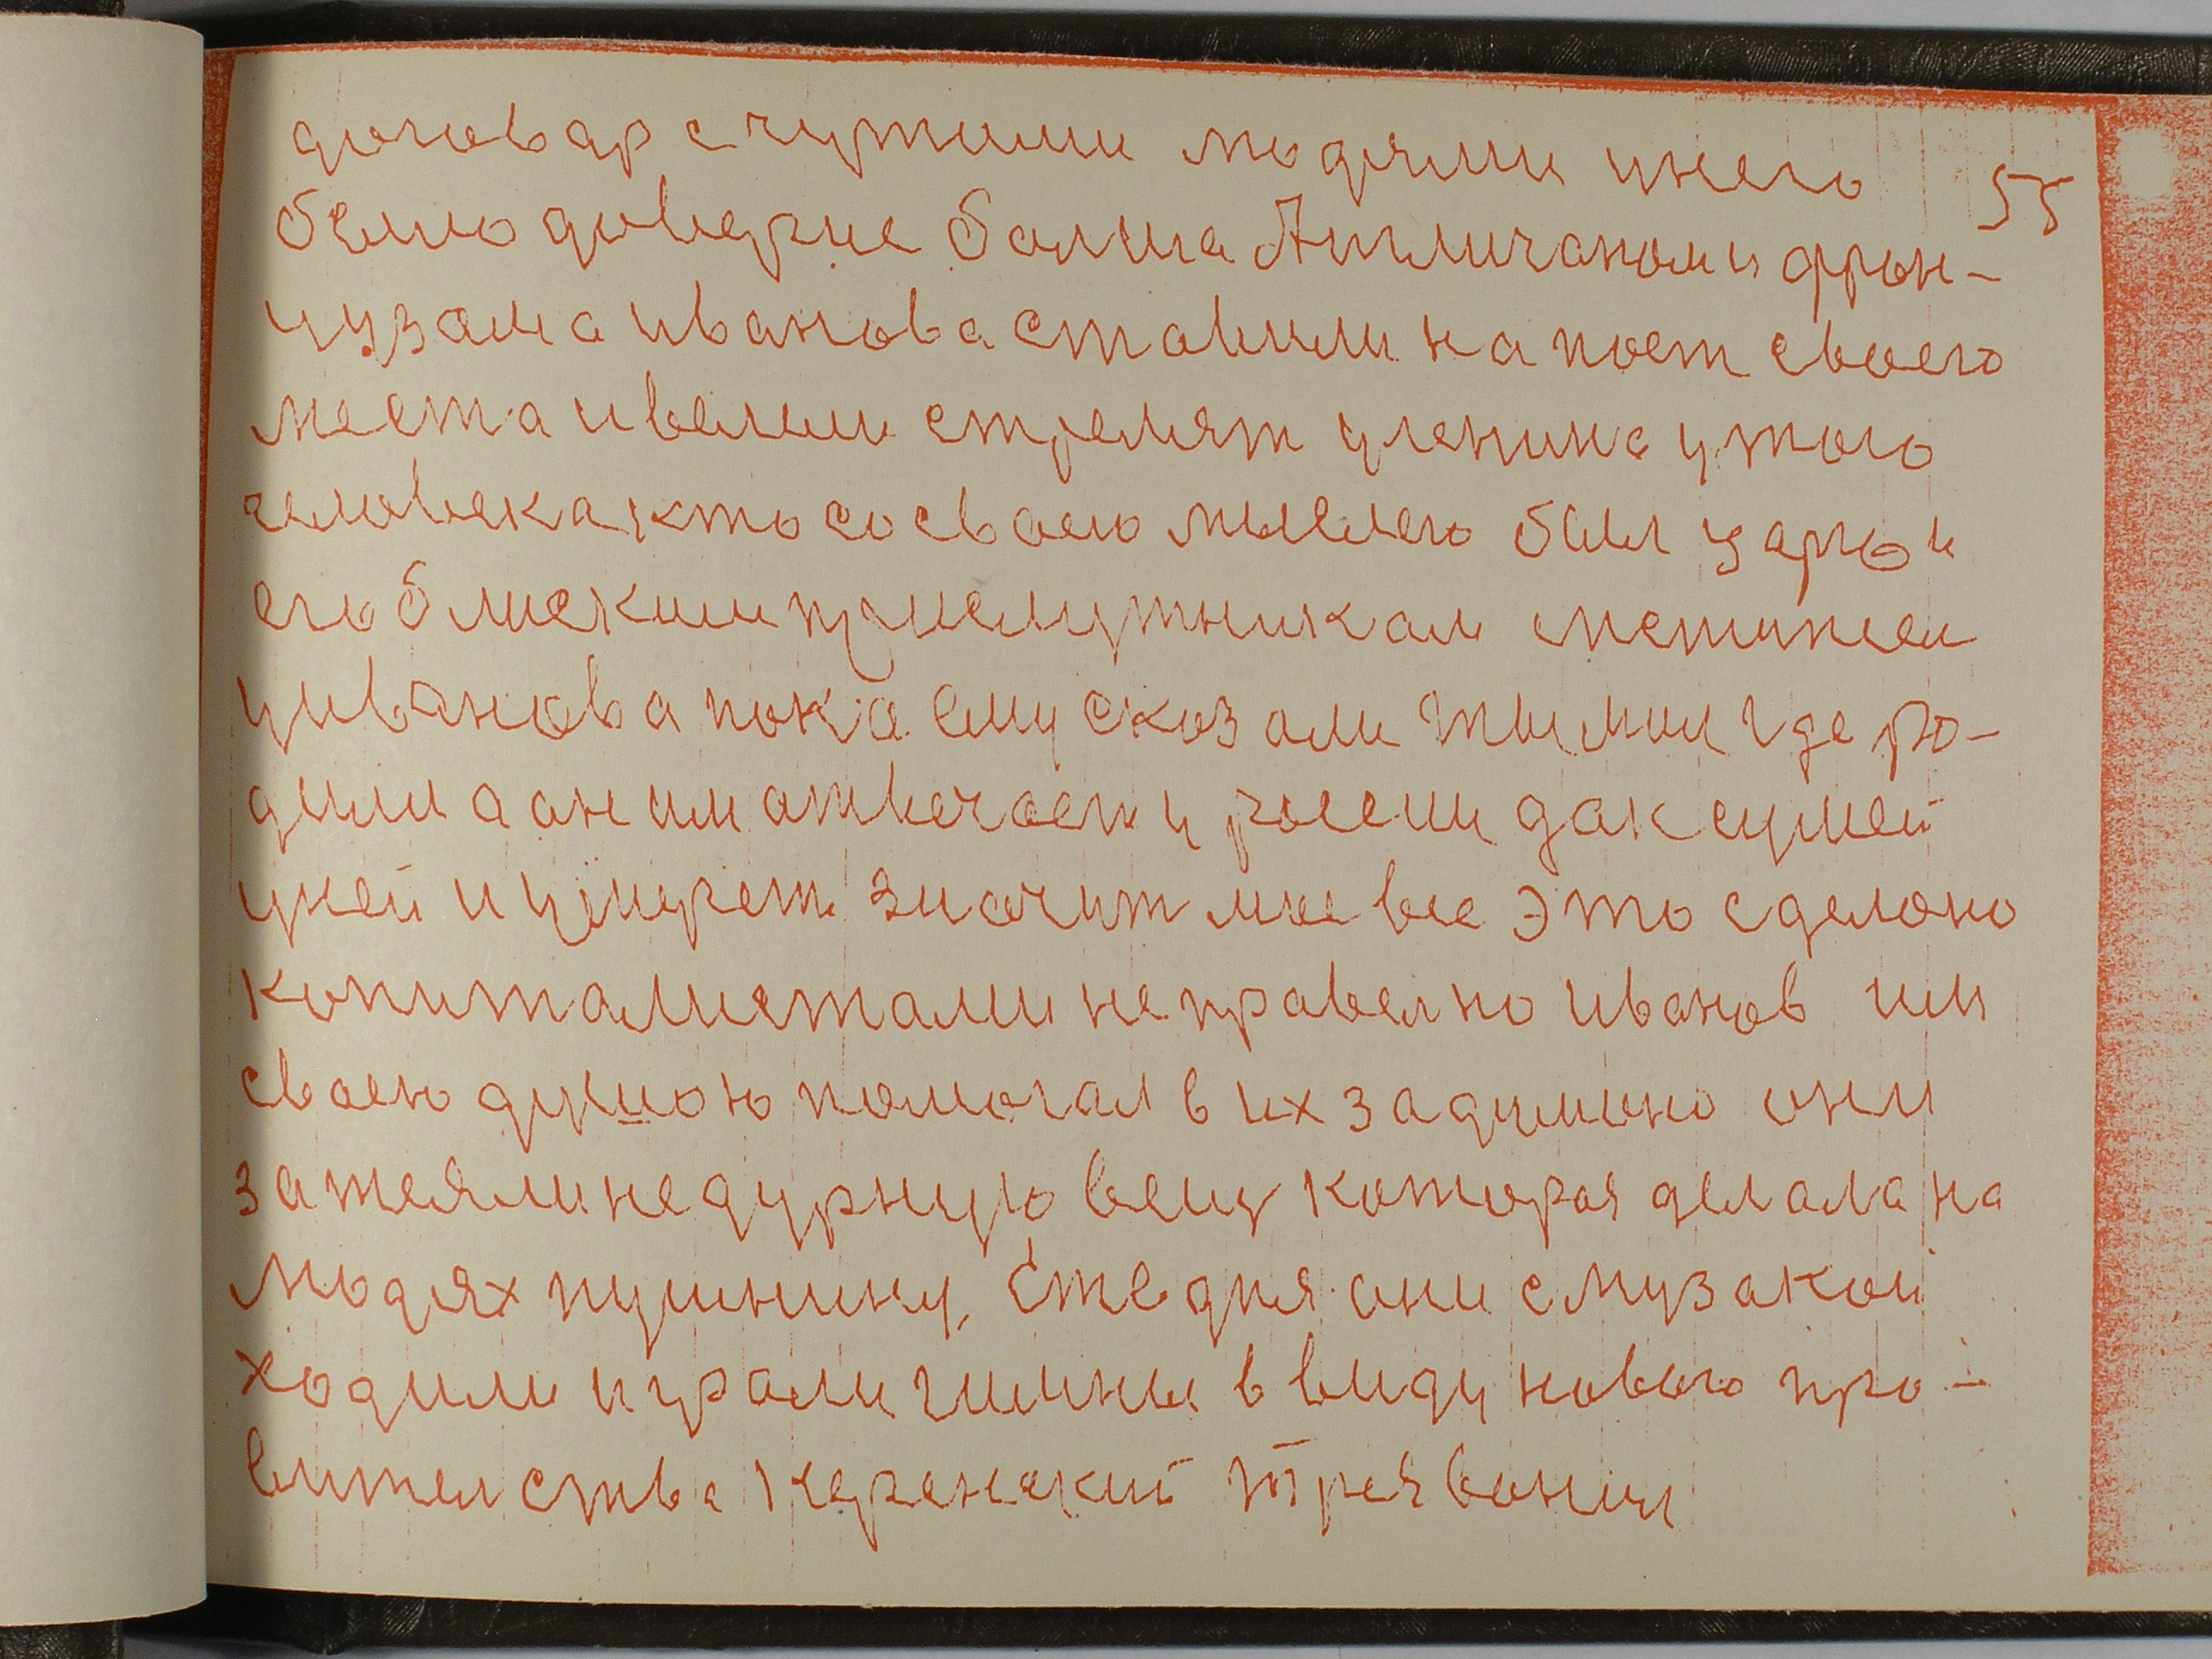 договар счутими людями унего 55
было доверие болша Англичаном и фрон-
цузам а иванова ставили на пост своего
места и велели стрелят уленина утого
человека кто со своею мыслею был царь и
его блиским приспутникам
у иванова пока ему сказали ты мил где ро-
дили а он им отвечает у росеии дак сумей
у ней и умерет значит мы все это сделоно
копиталистами неправелно иванов им
своею душою помогал в их задумано они
затеяли не дурную вещ которая делала на
людях пушнину, Етв дня они смузакой
ходили играли гимны в виду нового про-
вителства Керенский